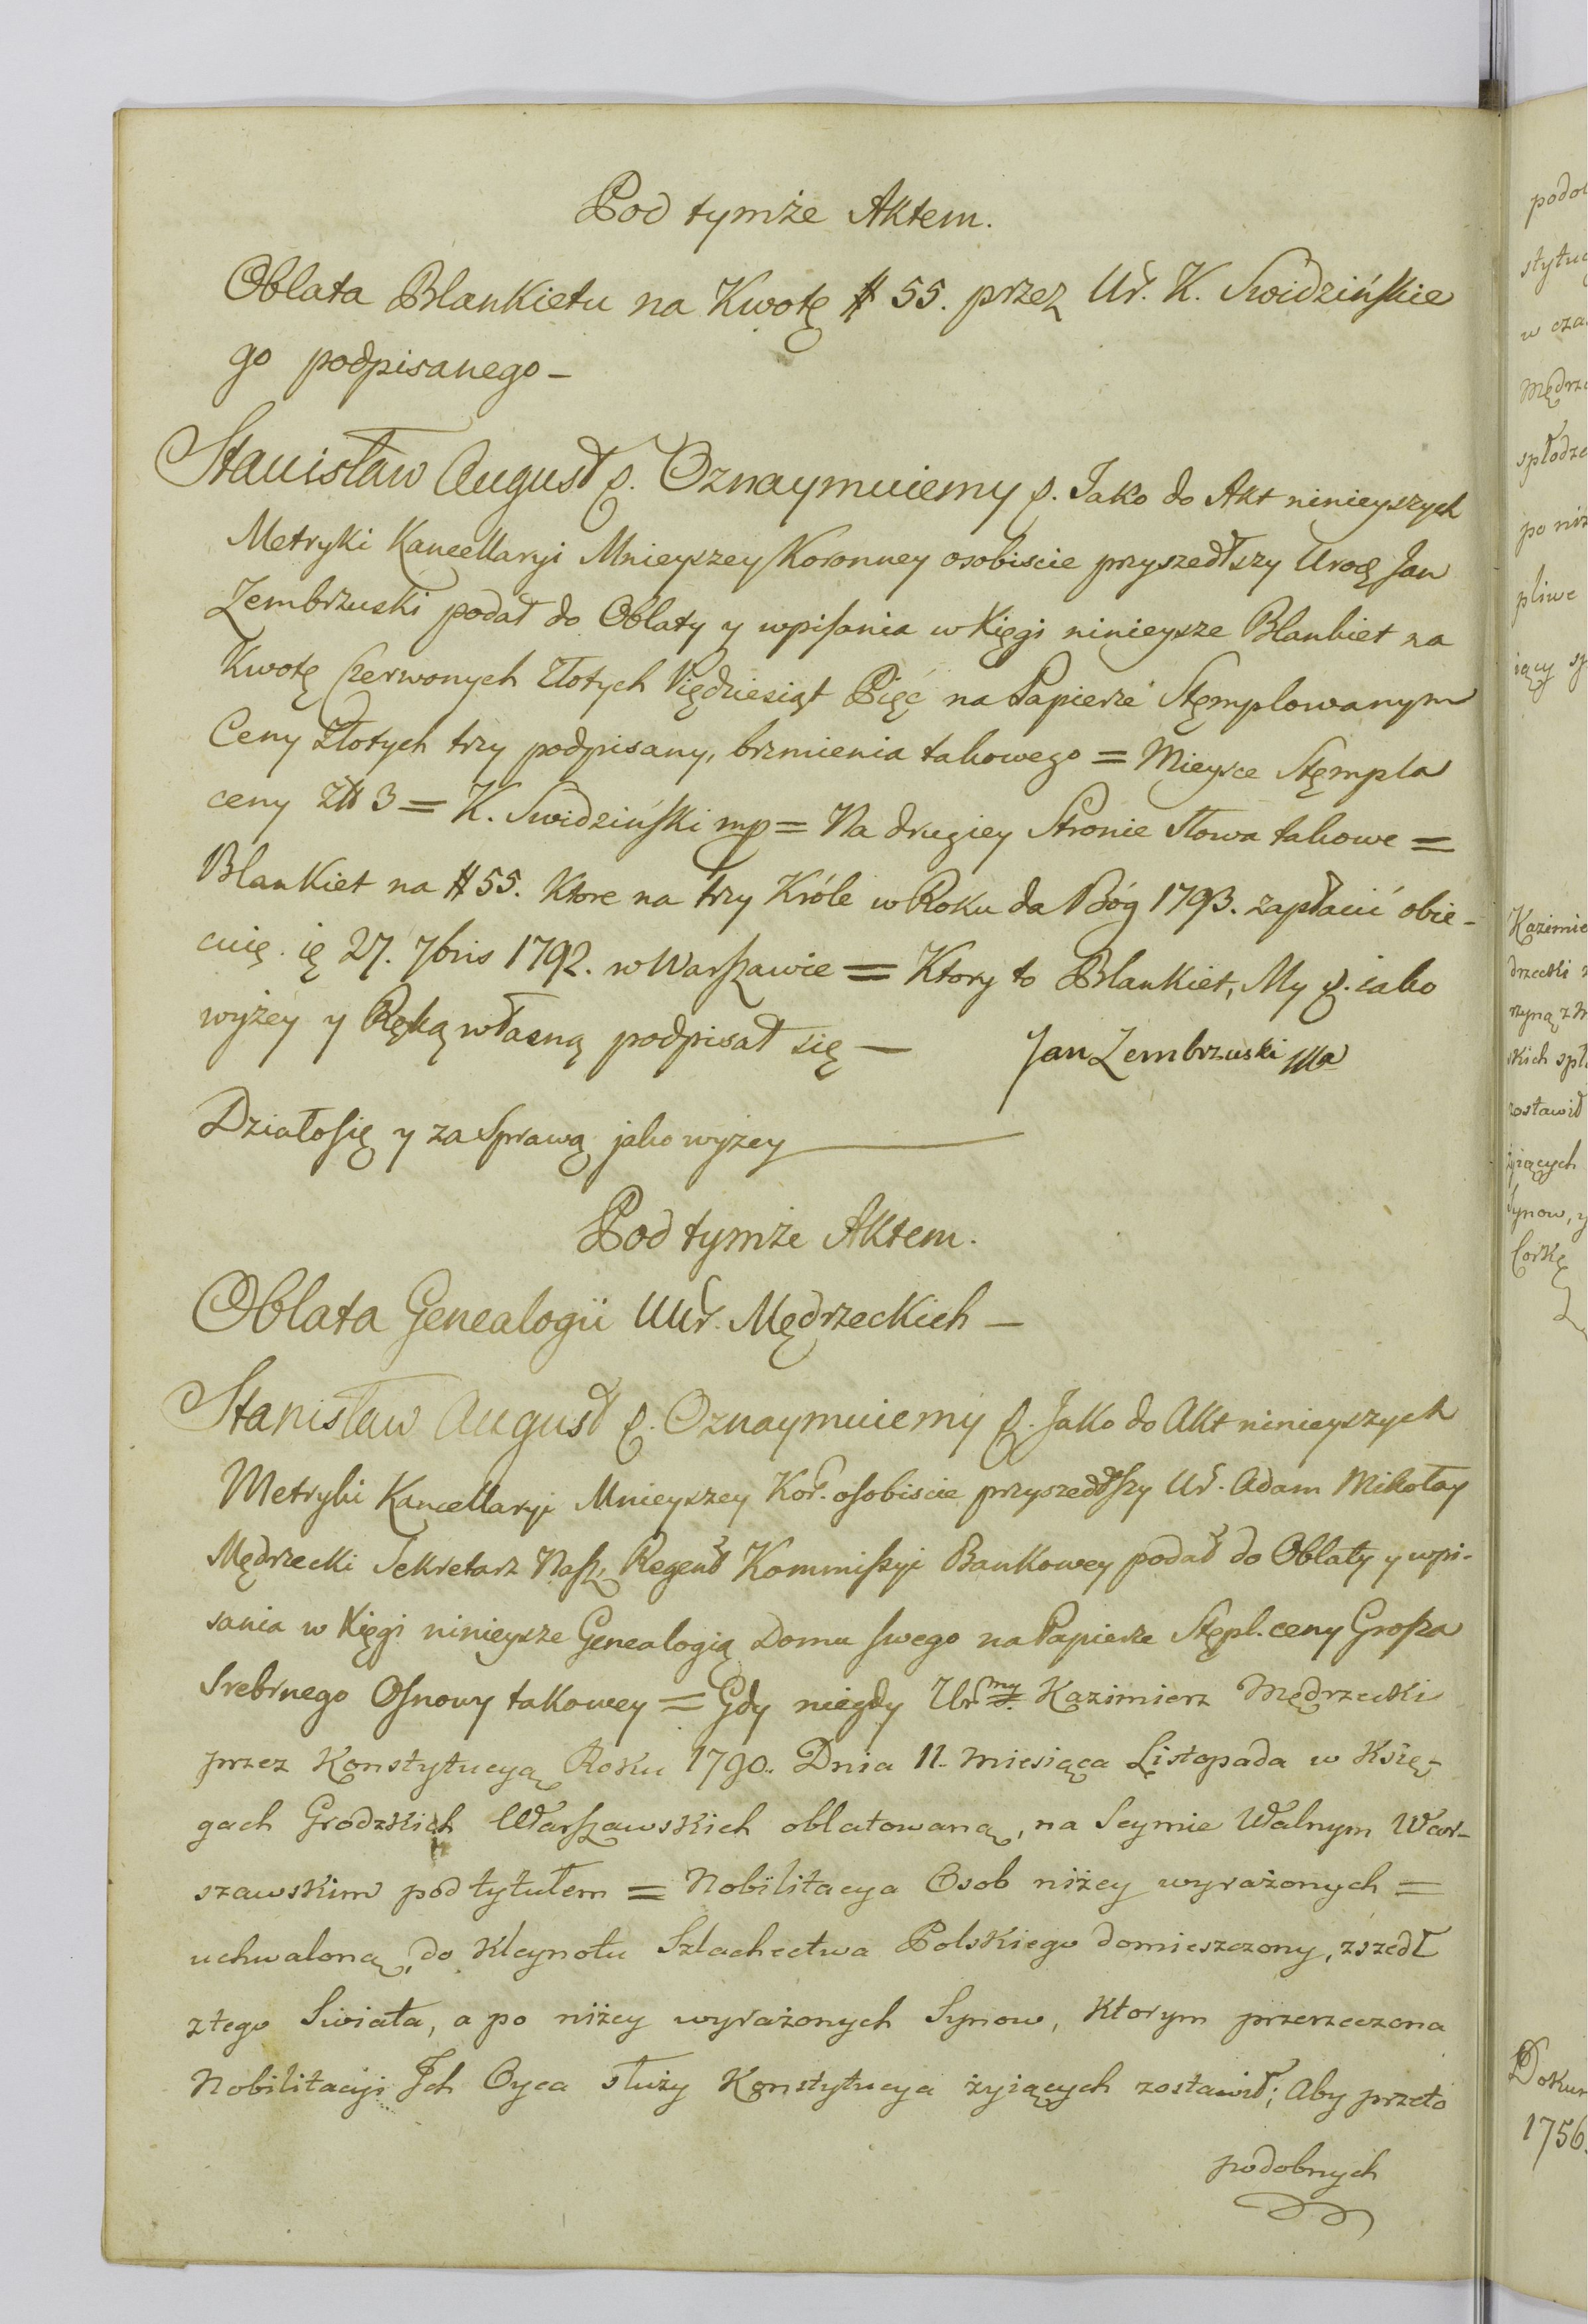 Pod tymże Aktem.
Oblata Blankietu na Kwotę # 55. przez Ur. K. Swidzińskie
go podpisanego –
Stanisław August p. Oznaymuiemy p. Jako do Akt ninieyszych
Metryki Kancellaryi Mnieyszey Koronney osobiscie przyszedłszy Urodz Jan
Zembrzuski podał do Oblaty y wpisania w Xięgi ninieysze Blankiet na
Kwotę Czerwonych Złotych Pięćdziesiąt Pięć na Papierze Stęmplowanym
Ceny Złotych trzy podpisany, brzmienia takowego = Mieysce Stęmpla
ceny Złł 3 = K. Swidziński mp = Na drugiey Stronie słowa takowe =
Blankiet na # 55. Ktore na trzy Króle w Roku da Bóg 1793. zapłacić obie-
cuię ię 27. 7bris 1792. w Warszawie = Ktory to Blankiet, My p. iako
wyżey y Ręką własną podpisał się — Jan Zembrzuski
Działo się y za Sprawą jako wyżey
Pod tymże Aktem.
Oblata Genealogii UUr. Mędrzeckich –
Stanisław August p. Oznaymuiemy p. Jako do Akt ninieyszych
Metryki Kancellaryi Mnieyszey Kor. osobiscie przyszedłszy Ur. Adam Mikołay
Mędrzecki Sekretarz Nasz, Regent Kommissyi Bankowey podał do Oblaty y wpi-
sania w Xięgi ninieysze Genealogią Domu swego na Papierze Stępl. ceny Grosza
Srebrnego Osnowy takowey = Gdy niegdy Ur:my Kazimierz Mędrzecki
przez Konstytucyą Roku 1790. Dnia 11. Miesiąca Listopada w Xsię-
gach Grodzkich Warszawskich oblatowaną, na Seymie Walnym War-
szawskim pod tytułem = Nobilitacya Osob niżey wyrażonych =
uchwaloną, do Kleynotu Szlachectwa Polskiego domieszczony, zszedł
z tego Swiata, a po niżey wyrażonych Synow, Ktorym przerzeczona
Nobilitacyi Ich Oyca służy Konstytucya żyiących zostawił; Aby przeto
podobnych
stytuc
w cza
Mędrze
spłodze
po niż
pliwe
Kazimie
drzecki
skich spł
zostawił
żyiących
Synow, y
Corkę
Dokum
1756.